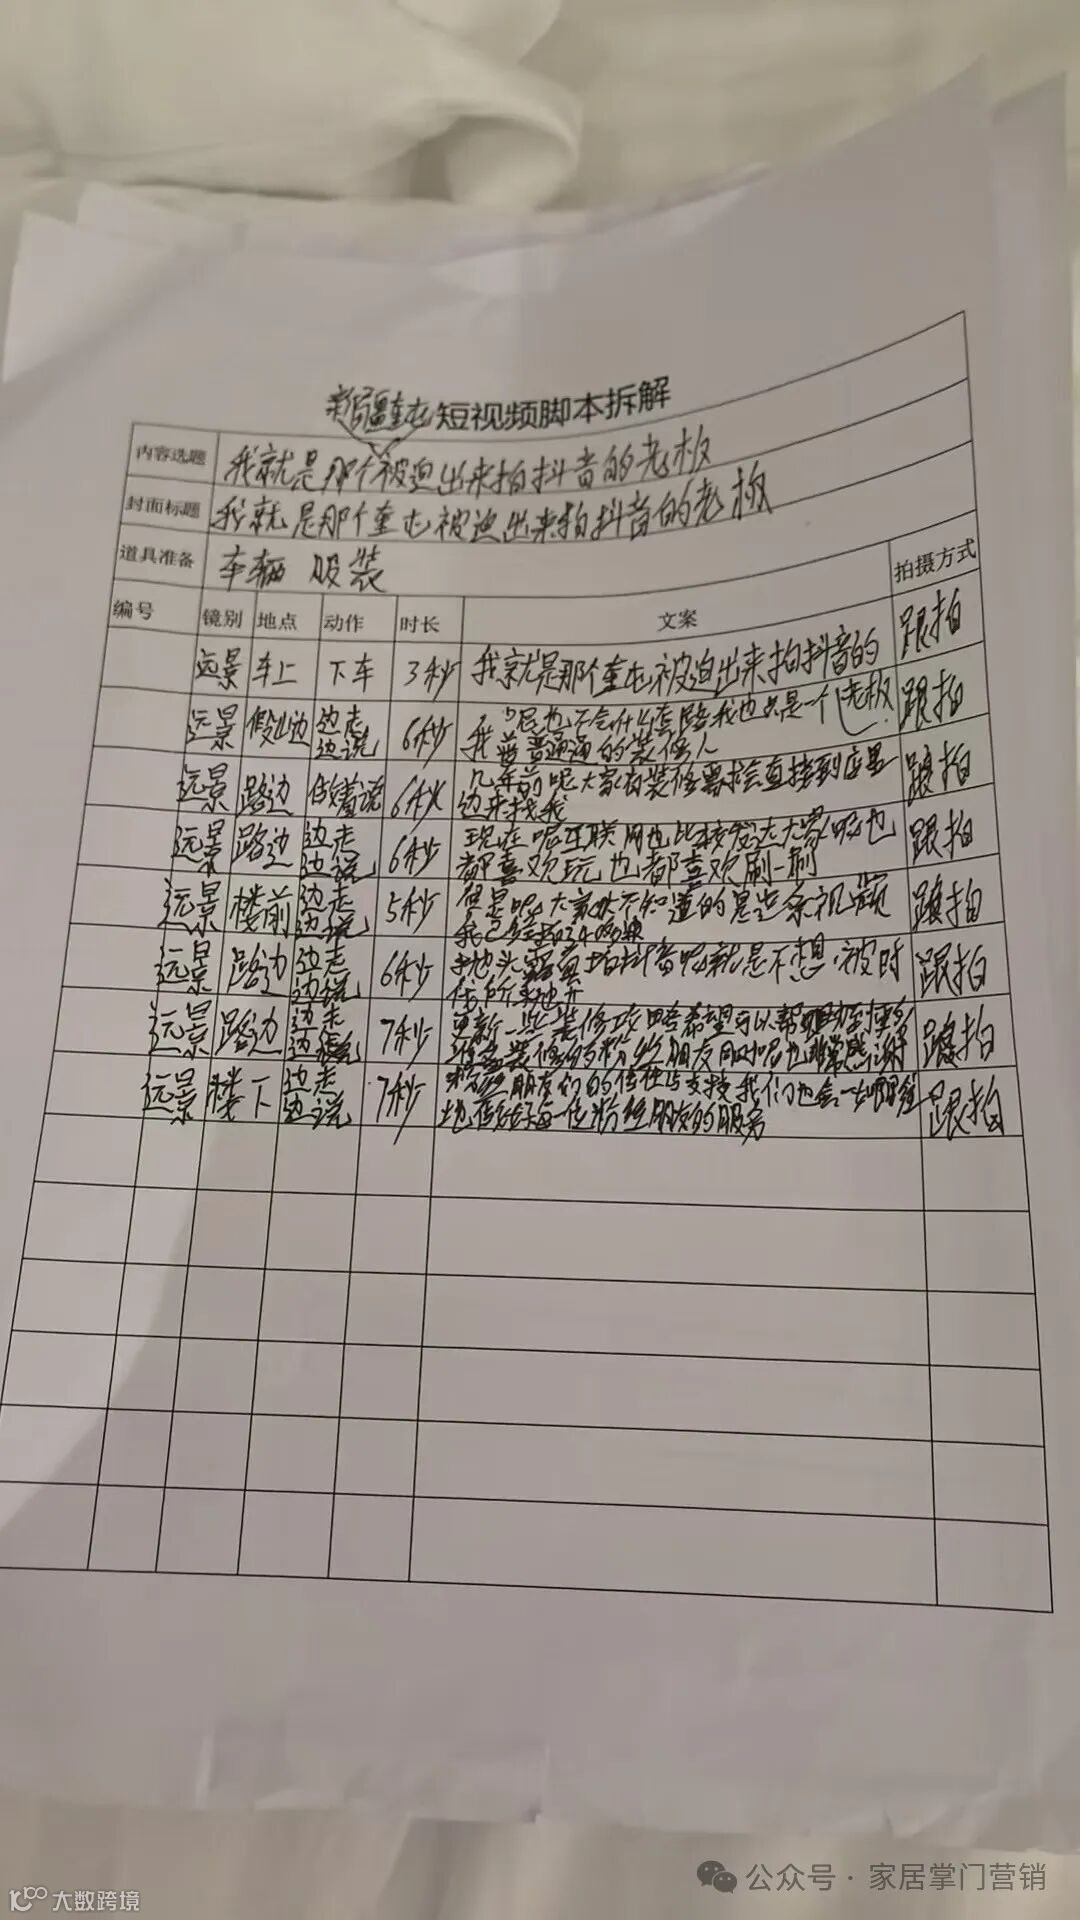 新疆奎屯短视频脚本拆解
内容选题 我就是那个被迫出来拍抖音的老板
封面标题 我就是那个奎屯被迫出来拍抖音的老板
道具准备 车辆 服装
编号 镜别 地点 动作 时长 文案 拍摄方式
远景 车上 下车 3秒 我就是那个奎屯被迫出来拍抖音的老板 跟拍
远景 假山边 边走边说 6秒 我呢也不会什么套路我也只是一个
普普通通的装修人 跟拍
远景 路边 站着说 6秒 几年前呢大家有装修需求会直接到店里
边来找我 跟拍
远景 路边 边走边说 6秒 现在呢互联网也比较发达大家呢也
都喜欢玩也都喜欢刷一刷 跟拍
远景 楼前 边走边说 5秒 但是呢大家不知道的是这条视频
我已经拍了 跟拍
远景 路边 边走边说 6秒 抛头露面拍抖音呢就是不想被时
代所 跟拍
远景 路边 边走边说 7秒 更新一些装修攻略希望可以帮助到
装修的粉丝朋友同时呢也非常感谢 跟拍
远景 楼下 边走边说 7秒 粉丝朋友们的信任与支持我们也会一如既往
地做好每一位粉丝朋友的服务 跟拍
公众号·家居掌门营销
大数跨境